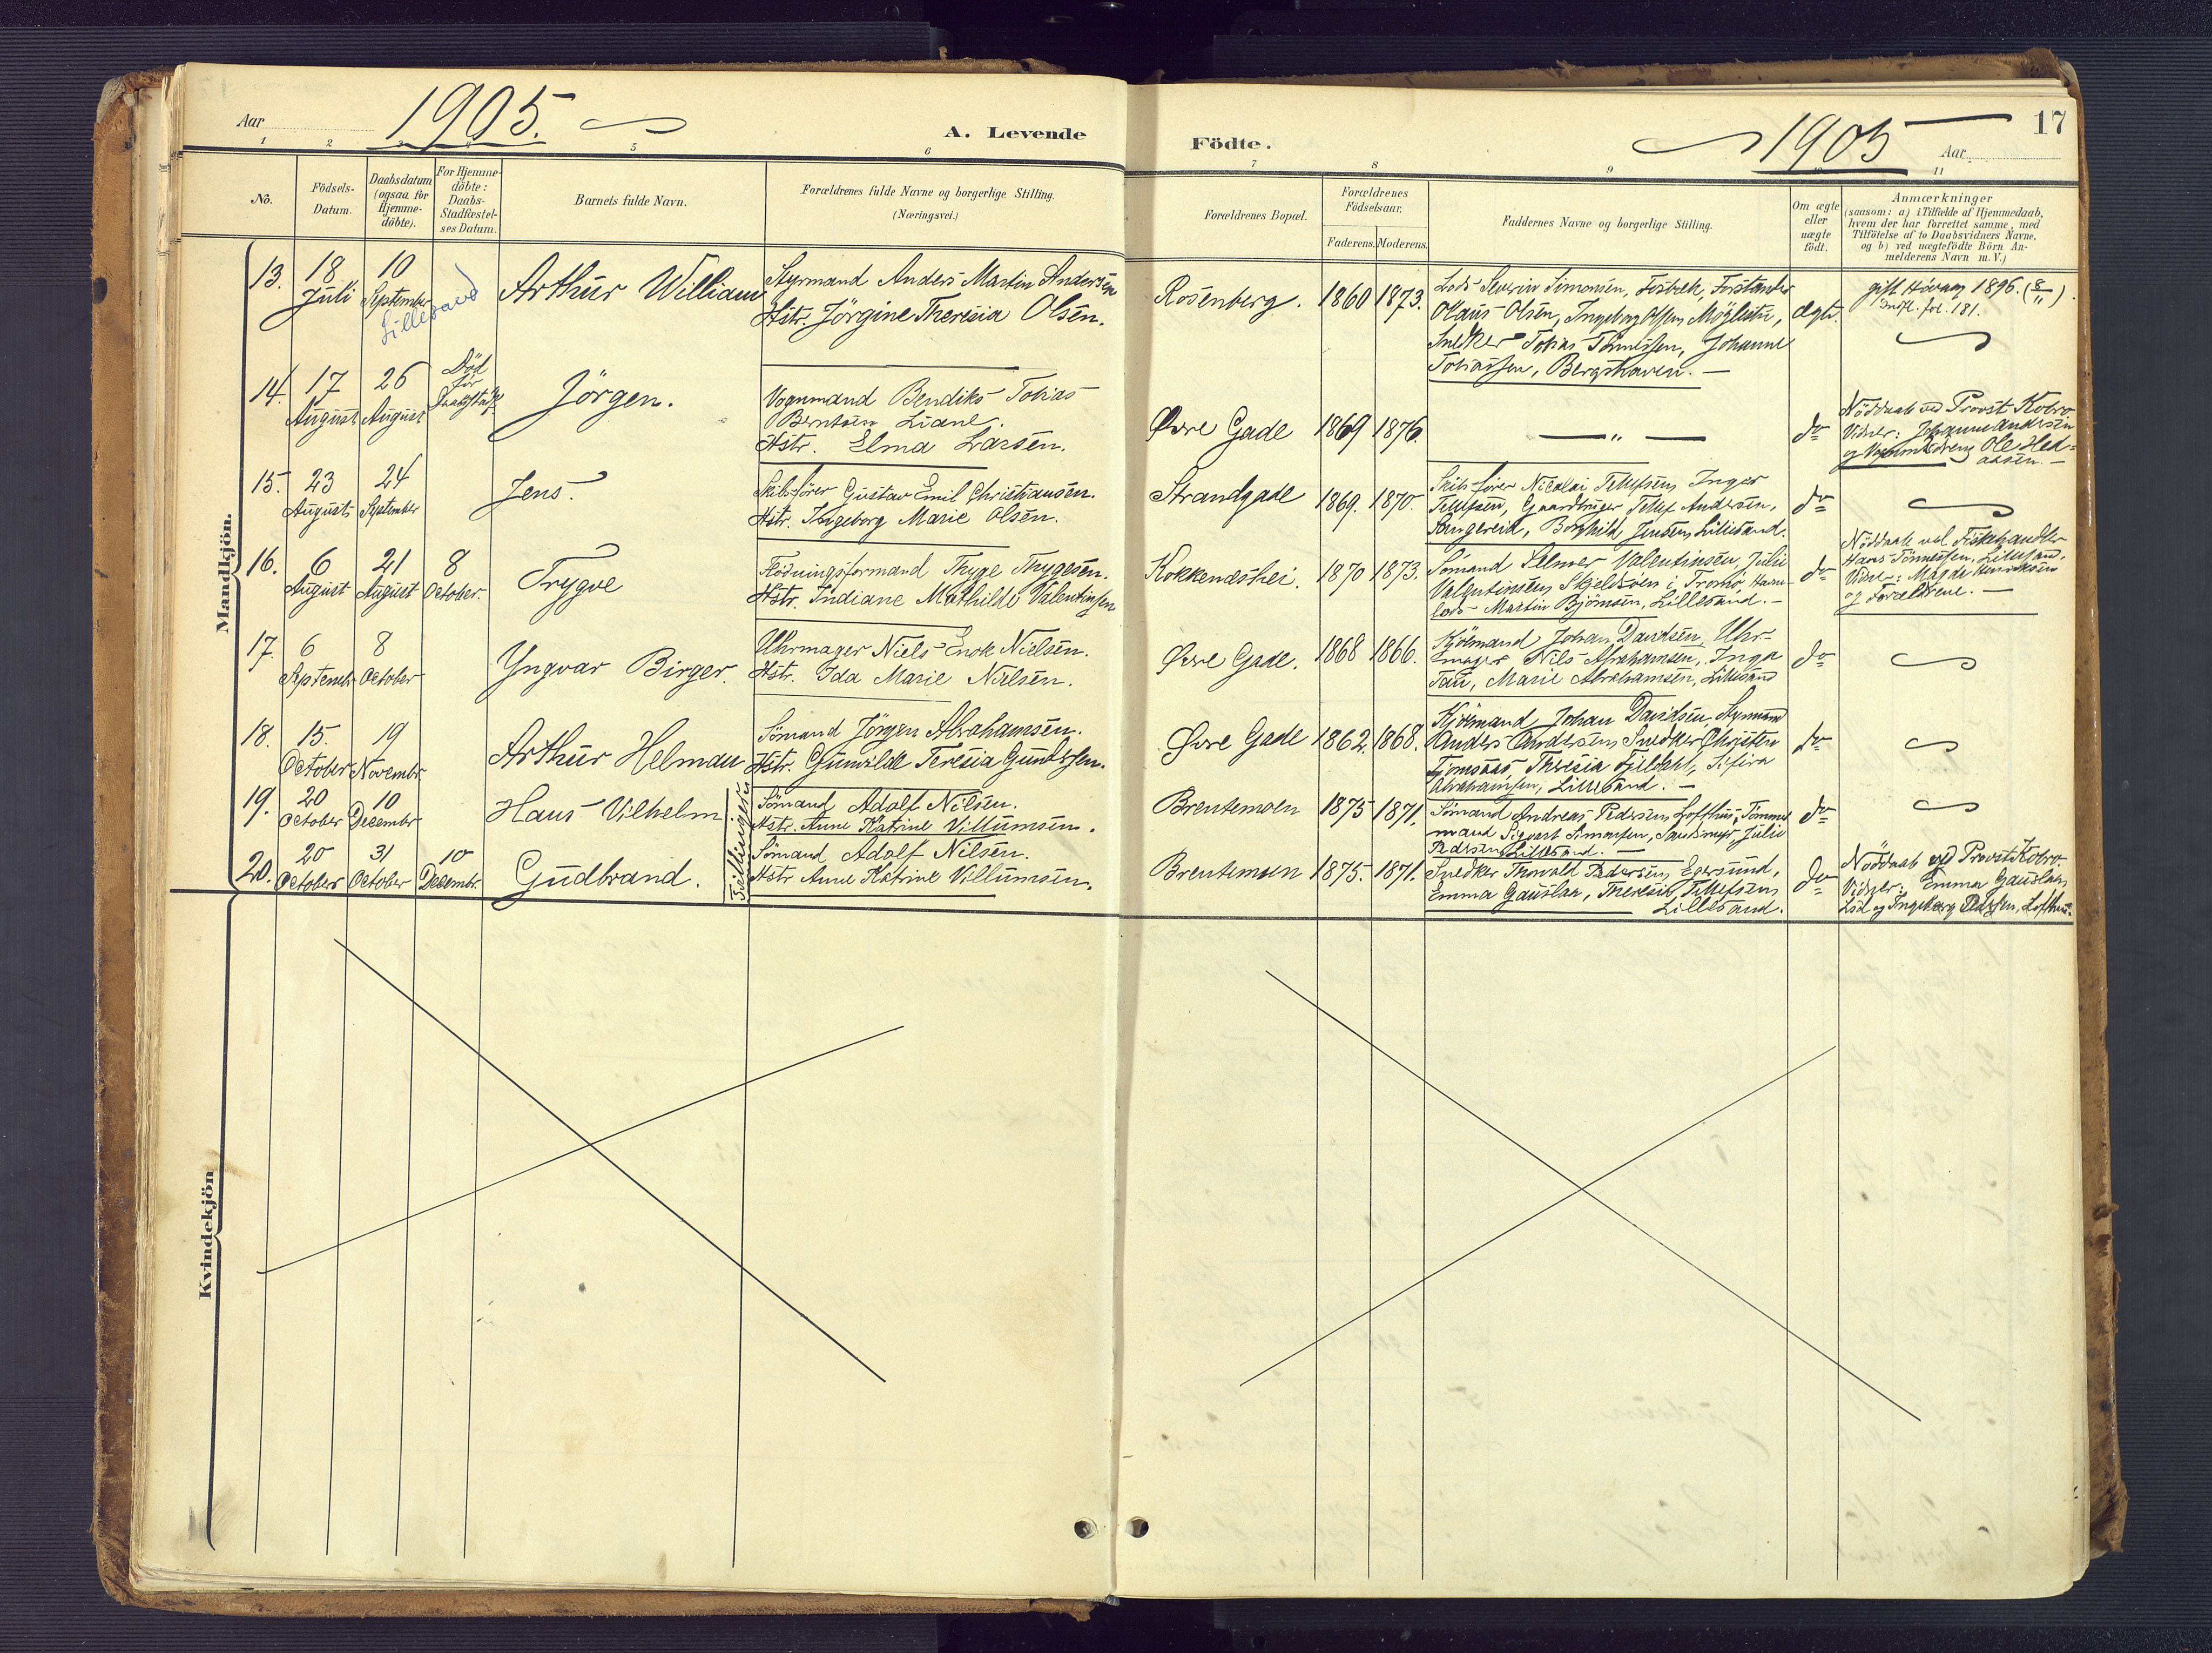 Aar
1905.
A. Levende
Födte.
1905
Aar
17
1
2
5
6
7
8
9
11
No.
Födsels-
Datum.
Daabsdatum
(ogsaa for
Hjemme-
döbte).
For Hjemme-
döbte:
Daabs-
Stadfæstel-
ses Datum.
Barnets fulde Navn.
Forældrenes fulde Navne og borgerlige Stilling.
(Næringsvei.)
Forældrenes Bopæl.
Forældrenes
Födselsaar.
Faderens.
Moderens.
Faddernes Navne og borgerlige Stilling.
Om ægte
eller
uægte
födt.
Anmærkninger
(saasom: a) i Tilfælde af Hjemmedaab,
hvem der har forrettet samme, med
Tilföielse af to Daabsvidners Navne.
og b) ved uægtefödte Börn An-
melderens Navn m.V.)
Mandkjön.
13.
18
Juli
10
September
Lillesand
Arthur William
Styrmand Anders Martin Andersen
Hstr. Jörgine Theresia Olsen.
Rosenberg.
1860
1873.
Lods Severin Simonsen, Fosbæk, Forstander
Olaus Olsen, Ingeborg Olsen Möglestu,
Snedker Tobias Tönnessen, Johanne
Tobiassen, Bergshaven. —
Ægte.
gift Hövaag 1896. (8/11).
Indfl. fol. 181.
14.
17
August
26
August
Död
för
Jörgen.
Vognmand Bendiks Tobias
Berntsen Liane.
Hstr. Elma Larsen.
Övre Gade
1869
1876.
— " —
do
Nöddaab ved Provst Kobro.
Vidner: Johanne Andersen
og Ole Hed-
aasen. —
15.
23
August
24
September
Jens.
Skibsförer Gustav Emil Christiansen.
Hstr. Ingeborg Marie Olsen.
Strandgade
1869.
1870.
Skibsförer Nicolai Tellefsen, Inger
Tellefsen, Gaardbruger Tellef Andersen,
Sangereid, Borghild Jensen, Lillesand.
do
16.
6
August
21
August
8
October.
Trygve
Flödningsformand Thyge Thygesen.
Hstr. Indiane Mathilde Valentinsen
Kokkenæshei.
1870
1873.
Sömand Selmer Valentinsen, Julie
Valentinsen, Skjeldsöen i Tromö, Havne-
lods Martin Björnsen, Lillesand. —
do
Nöddaab ved Fiskehandler
Hans Tönnessen, Lillesand.
Vidner: Magda Henriksen
og Forældrene. —
17.
6
September
8
October
Yngvar Birger.
Uhrmager Niels Enok Nielsen.
Hstr. Ida Marie Nielsen.
Övre Gade.
1868
1866.
Kjölmand Johan Davidsen, Uhr-
mager Nils Abrahamsen, Inga
Tau, Marie Abrahamsen, Lillesand
do
18.
15.
October
19
Novembr.
Arthur Helman
Sömand Jörgen Abrahamsen.
Hstr. Gunvilde Teresia Gundersen.
Övre Gade
1862.
1868.
Kjölmand Johan Davidsen, Styrmand
Anders Andersen, Snedker Christen
Tjomsaas, Theresia Fjeldahl, Sefira
Abrahamsen, Lillesand. —
do
19.
20
October
10
Decembr.
Hans Vilhelm
Sömand Adolf Nilsen.
Hstr. Anne Katrine Villumsen.
Brentemoen
1875
1871.
Sömand Andreas Pedersen, Lofthus, Tömmer-
mand Sigvart Simonsen, Sandsmyr, Julie
Pedersen, Lillesand. —
do
20.
20
October
31
October
10
Decembr.
Gudbrand.
Tvillinger
Sömand Adolf Nilsen.
Hstr Anne Katrine Villumsen.
Brentemoen
1875.
1871.
Snedker Thorvald Pedersen, Egersund,
Emma Gauslaa, Theresia Tellefsen,
Lillesand.
do
Nöddaab ved Provst Kobro.
Vidner: Emma Gauslaa
og Ingeborg Pedersen, Lofthus.
Kvindekjön